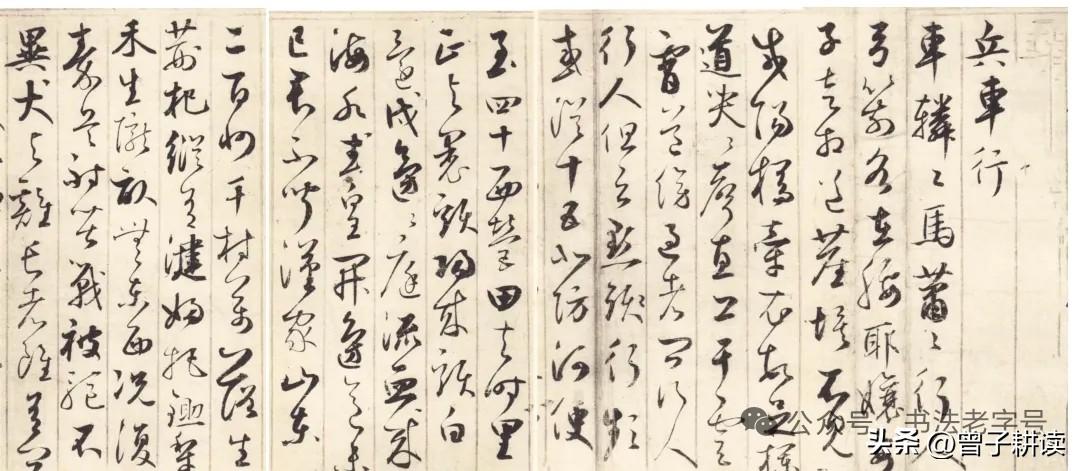 兵車行
車轔〻馬蕭〻行人
弓箭各在腰耶孃妻
子走相送塵埃不見
咸陽橋牽衣頓足攔
道哭〻聲直上干雲
霄道傍過者問行人
行人但云點頻行頻
或從十五北防河便
至四十西營田去時里
正與裹頭歸來頭白
還戍邊〻庭流血成
海水武皇開邊意未
已君不聞漢家山東
二百州千村萬落生
荊杞縱有健婦把鋤犁
禾生隴畝無東西況復
秦兵耐苦戰被驅不
異犬與雞長者雖有問
公众号 · 书法老字号
头条 @曾子耕读